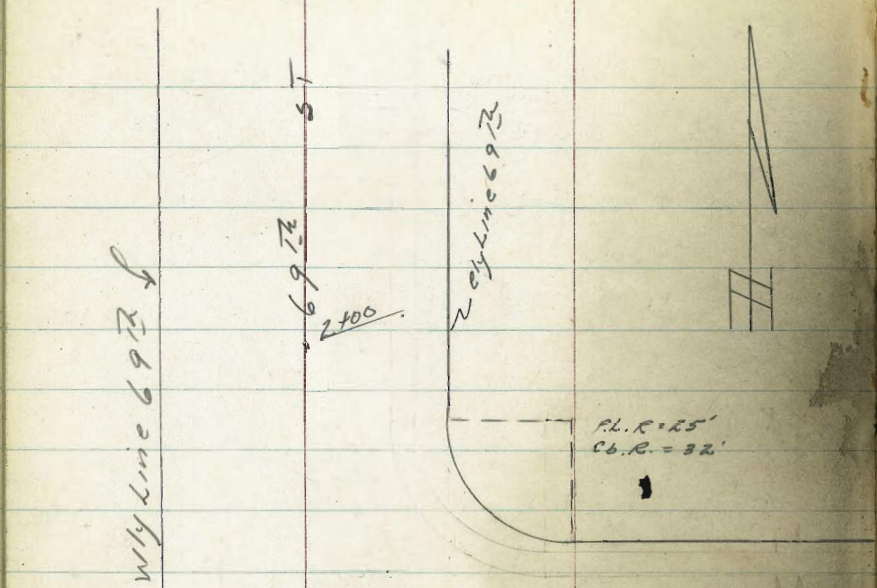 Wly Line 69th
69th ST
2+00
Ely Line 69th
P.L. R = 25'
Cb. R. = 32'